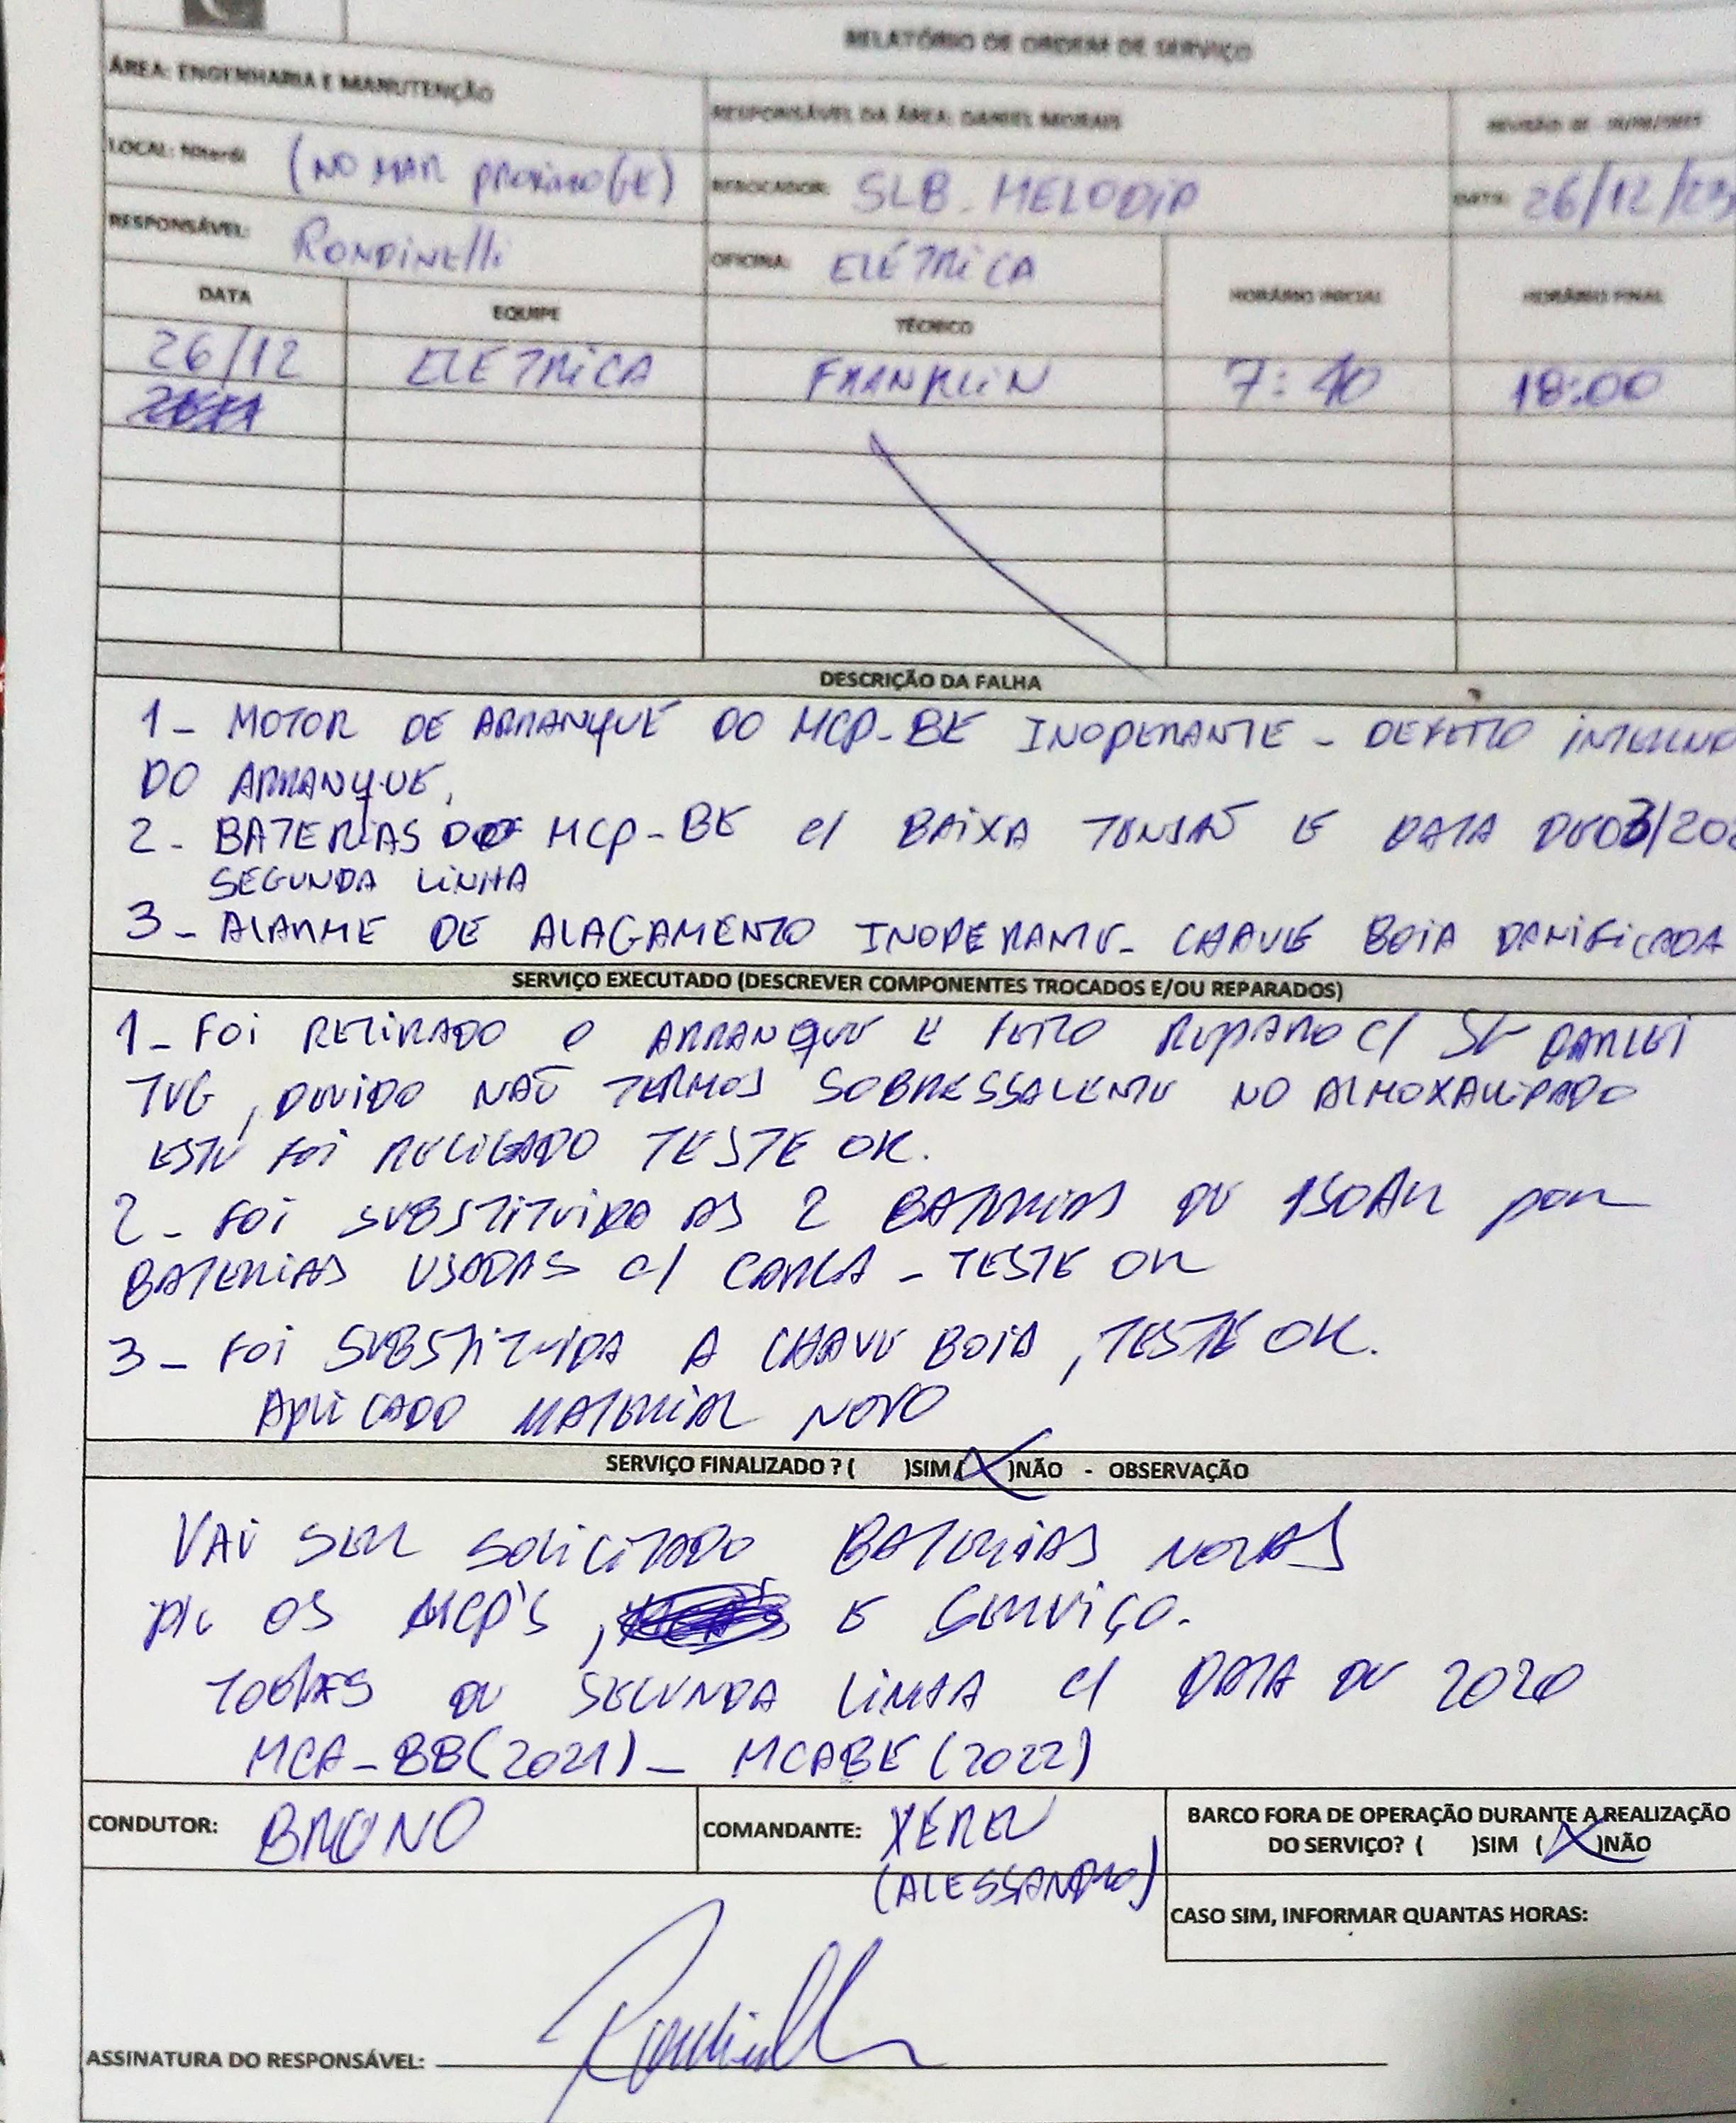 RELATÓRIO DE ORDEM DE SERVIÇO
ÁREA: ENGENHARIA E MANUTENÇÃO
RESPONSÁVEL DA ÁREA: DANIEL MORAIS
LOCAL: Niterói (NO MAR PROXIMO
REBOCADOR: SLB-MELODIA
DATA: 26/12/23
RESPONSÁVEL: RONDINElli
OFICINA: ELÉTRICA
DATA EQUIPE TÉCNICO HORÁRIO INICIAL HORÁRIO FINAL
26/12 ELETRICA FRANKLIN 7:40 18:00
DESCRIÇÃO DA FALHA
1- MOTOR DE ARRANQUE DO MCP-BE INOPERANTE - DEFEITO INTERNO
DO ARRANQUE,
2- BATERIAS DO MCP-BE c/ BAIXA TENSÃO E DATA DE 03/202
SEGUNDA LINHA
3- ALARME DE ALAGAMENTO INOPERANTE- CHAVE BOIA DANIFICADA
SERVIÇO EXECUTADO (DESCREVER COMPONENTES TROCADOS E/OU REPARADOS)
1- FOI RETIRADO O ARRANQUE E FEITO REPARO C/ SR
, DEVIDO NÃO TERMOS SOBRESSALENTE NO ALMOXARIFADO
ESTE FOI RELIGADO TESTE OK.
2- FOI SUBSTITUIDO AS 2 BATERIAS DE 150AH POR
BATERIAS USADAS C/ CARGA - TESTE OK
3- FOI SUBSTITUIDA A CHAVE BOIA, TESTE OK.
APLICADO MATERIAL NOVO
SERVIÇO FINALIZADO ? ( )SIM (X)NÃO - OBSERVAÇÃO
VAI SER SOLICITADO BATERIAS NOVAS
P/ OS MCP'S, E SERVIÇO.
TODAS DE SEGUNDA LINHA C/ DATA DE 2020
MCA-BB(2021)- MCABE(2022)
CONDUTOR: BRUNO
COMANDANTE: XEREU
(ALESSANDRO)
BARCO FORA DE OPERAÇÃO DURANTE A REALIZAÇÃO
DO SERVIÇO? ( )SIM (X)NÃO
CASO SIM, INFORMAR QUANTAS HORAS:
ASSINATURA DO RESPONSÁVEL: